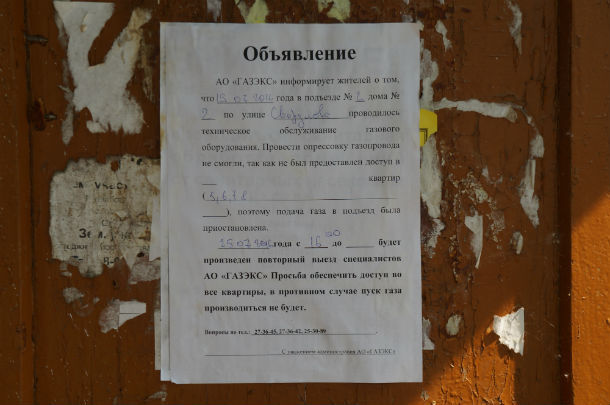 Объявление
АО «ГАЗЭКС» информирует жителей о том,
что 15.07.2016 года в подъезде № 2 дома №
2 по улице Свердлова проводилось
техническое обслуживание газового
оборудования. Провести опрессовку газопровода
не смогли, так как не был предоставлен доступ в
квартир
(5,6,7,8
), поэтому подача газа в подъезд была
приостановлена.
15.07.2016 года с 16 00 до будет
произведен повторный выезд специалистов
АО «ГАЗЭКС» Просьба обеспечить доступ во
все квартиры, в противном случае пуск газа
производиться не будет.
Вопросы по тел.: 27-36-45, 27-36-42, 25-30-89
С уважением администрация АО «ГАЗЭКС»